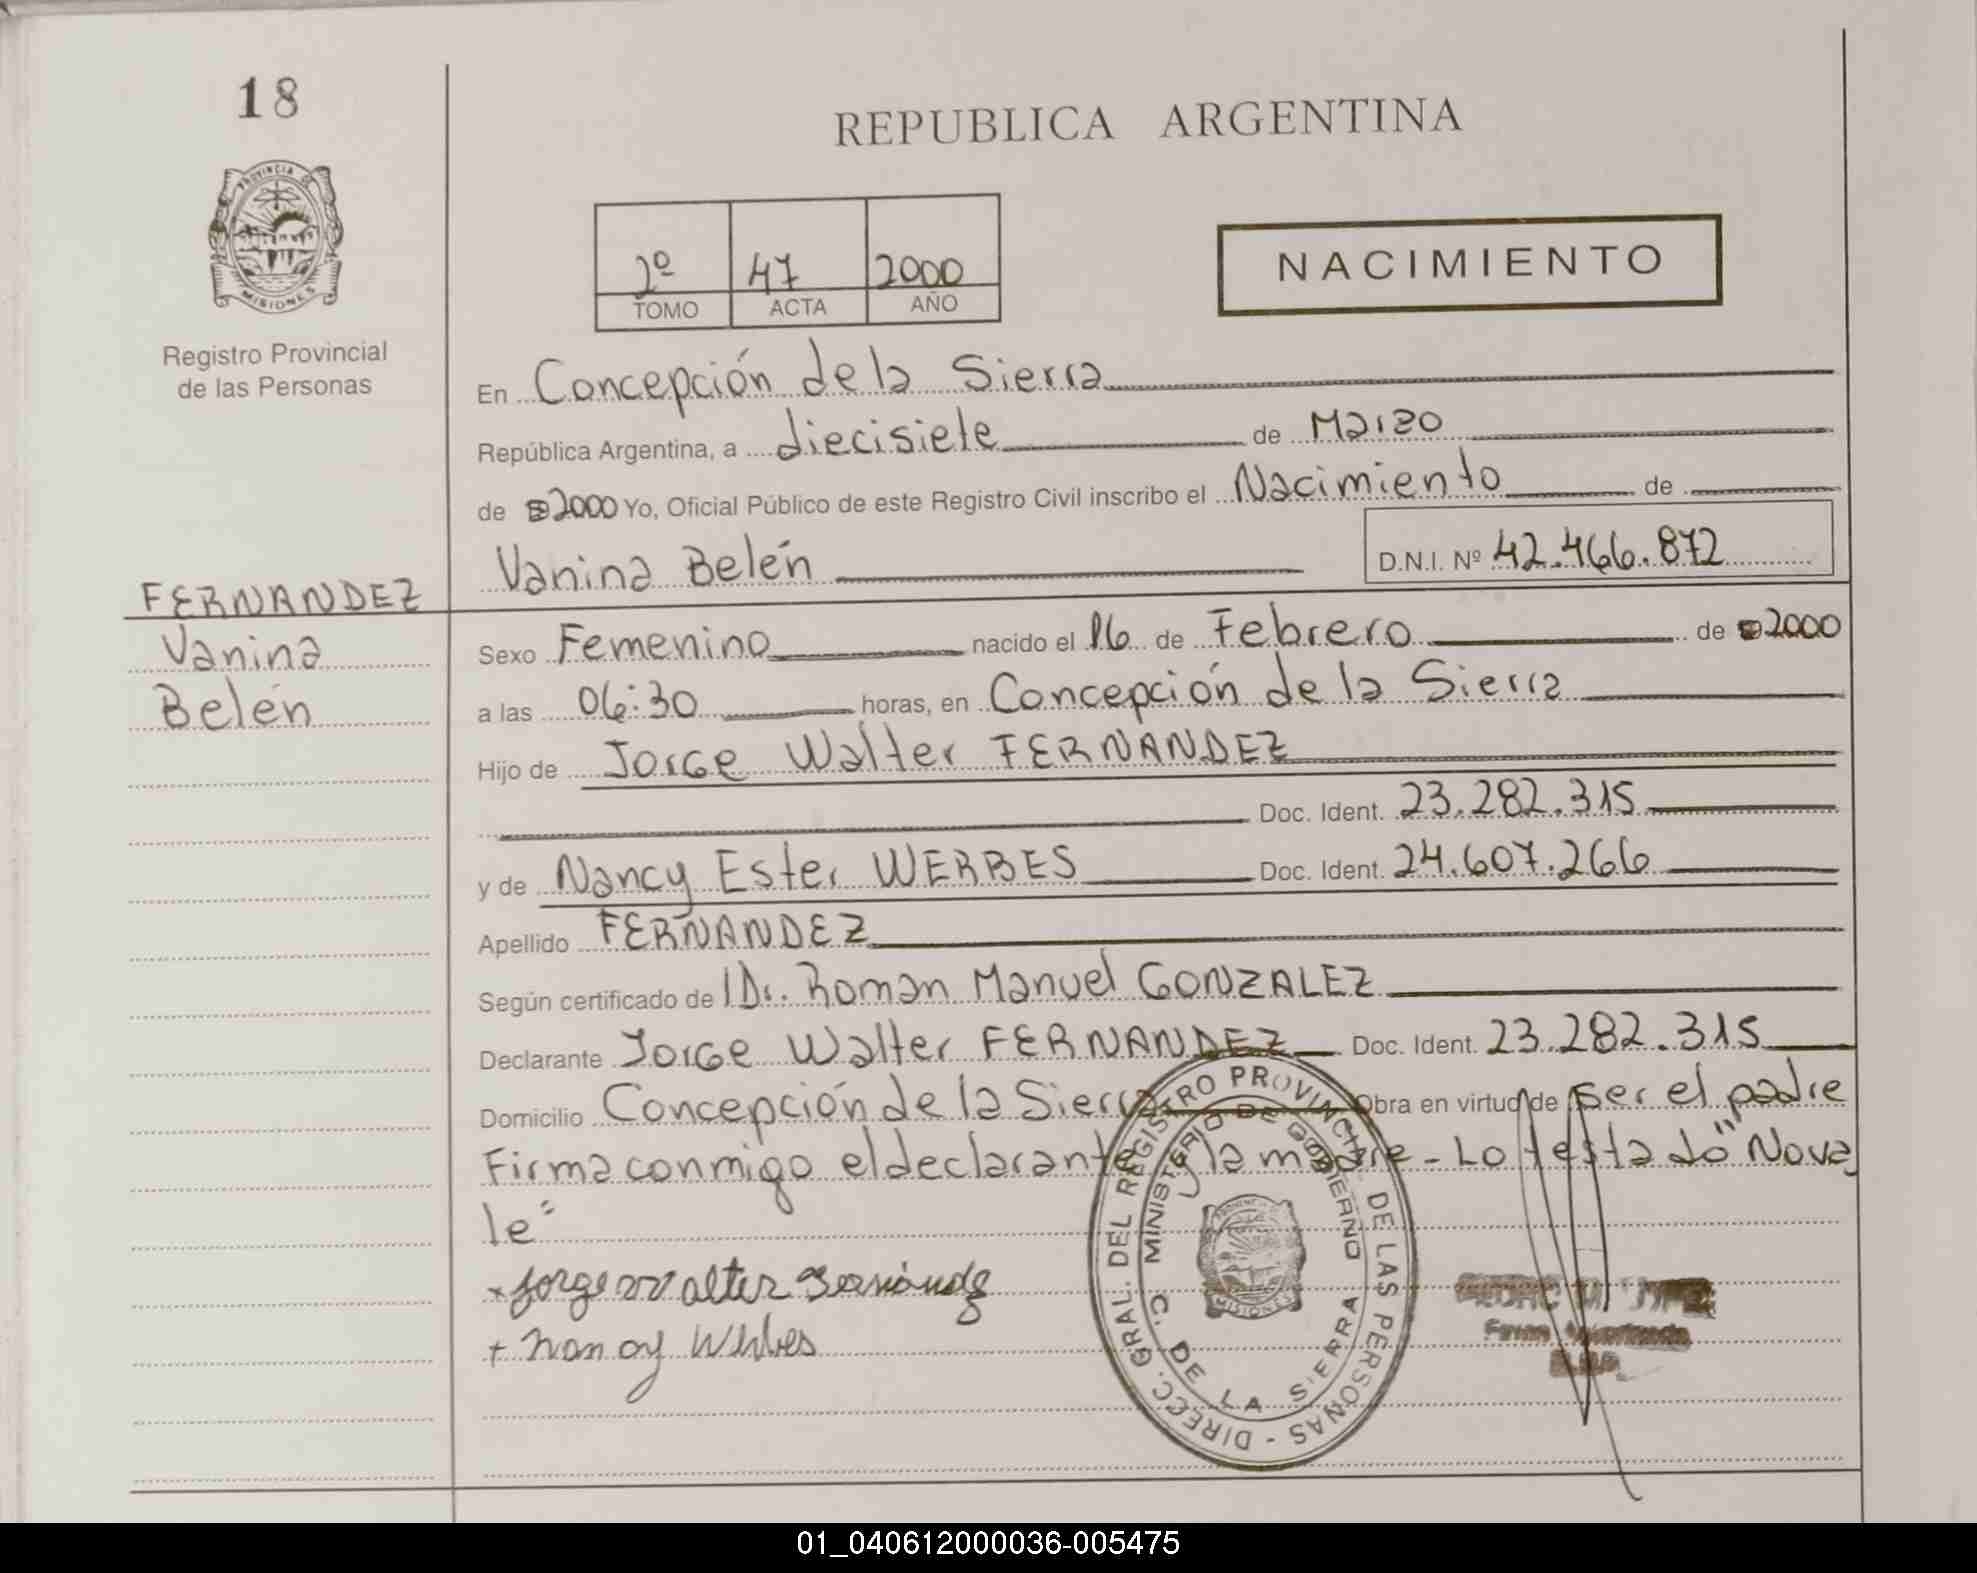 18
PROVINCIA DE
MISIONES
Registro Provincial
de las Personas
REPUBLICA ARGENTINA
2º 47 2000
TOMO ACTA AÑO
NACIMIENTO
En Concepción de la Sierra
República Argentina, a diecisiete de Marzo
de 2000 Yo, Oficial Público de este Registro Civil inscribo el Nacimiento de
Vanina Belén D.N.I. Nº 42.466.872
FERNANDEZ
Vanina
Belén
Sexo Femenino nacido el 16 de Febrero de 2000
a las 06:30 horas, en Concepción de la Sierra
Hijo de Jorge Walter FERNANDEZ
Doc. Ident. 23.282.315
y de Nancy Ester WERBES Doc. Ident. 24.607.266
Apellido FERNANDEZ
Según certificado de Dr. Roman Manuel GONZALEZ
Declarante Jorge Walter FERNANDEZ Doc. Ident. 23.282.315
Domicilio Concepción de la Sierra Obra en virtud de ser el padre
Firma conmigo el declarante y la madre - Lo testado "No va
le"
+ Jorge Walter Fernández
+ Nancy Werbes
DIRECC. GRAL. DEL REGISTRO PROVINCIAL DE LAS PERSONAS -
MINISTERIO DE GOBIERNO
C. DE LA SIERRA
MISIONES
Firma Autorizada
01_040612000036-005475